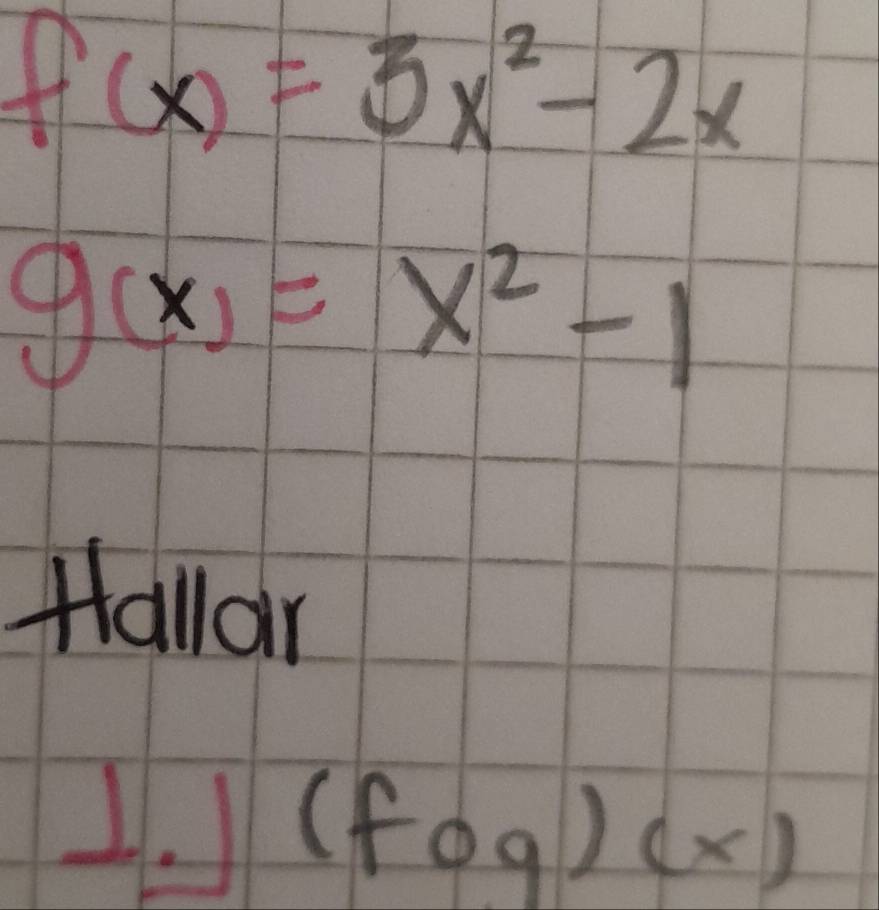 f(x) = 3x² - 2x
g(x) = x² - 1
Hallar
1.] (fog)(x)